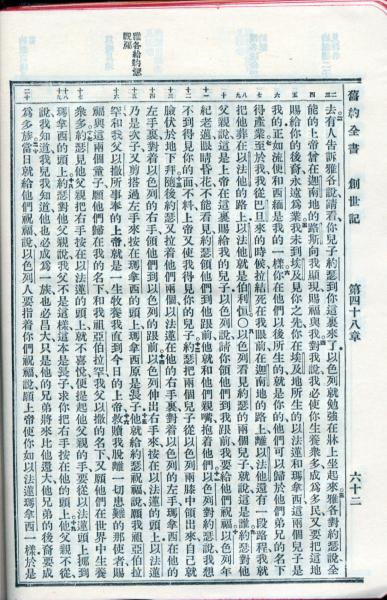 舊約全書 創世記 第四十八章 六十二
去有人告訴雅各說請看你兒子約瑟到你這裏來了以色列就勉強在牀上坐起來雅各對約瑟說全
能的上帝曾在迦南地的路斯向我顯現賜福與我對我說我必使你生養衆多成爲多民又要把這地
賜給你的後裔永遠爲業我未到埃及見你之先你在埃及地所生的以法蓮和瑪拿西這兩個兒子是
我的正如流便和西緬是我的一樣你在他們以後所生的就是你的他們可以歸於他們弟兄的名下
得產業至於我我從巴旦來的時候拉結死在我眼前在迦南地的路上離以法他還有一段路程我就
把他葬在以法他的路上以法他就是伯利恒○以色列看見約瑟的兩個兒子就說這是誰約瑟對他
父親說這是上帝在這裏賜給我的兒子以色列說請你領他們到我跟前我要給他們祝福以色列年
紀老邁眼睛昏花不能看見約瑟領他們到他跟前他就和他們親嘴抱着他們以色列對約瑟說我想
不到得見你的面不料上帝又使我得見你的兒子約瑟把兩個兒子從以色列兩膝中領出來自己就
臉伏於地下拜隨後約瑟又拉着他們兩個以法蓮在他的右手裏對着以色列的左手瑪拿西在他的
左手裏對着以色列的右手領他們到以色列的跟前以色列伸出右手來按在以法蓮的頭上以法蓮
乃是次子又剪搭過左手來按在瑪拿西的頭上瑪拿西原是長子他就給約瑟祝福說願我祖亞伯拉
罕和我父以撒所事奉的上帝就是一生牧養我直到今日的上帝救贖我脫離一切患難的那使者賜
福與這兩個童子願他們歸在我的名下和我祖亞伯拉罕我父以撒的名下又願他們在世界中生養
衆多約瑟見他父親把右手按在以法蓮的頭上就不喜悅便提起他父親的手要從以法蓮頭上挪到
瑪拿西的頭上約瑟對他父親說我父不是這樣這本是長子求你把右手按在他的頭上他父親不從
說我知道我兒我知道他也必成爲一族也必昌大只是他的兄弟將來比他還大他兄弟的後裔要成
爲多族當日就給他們祝福說以色列人要指着你們祝福說願上帝使你如以法蓮瑪拿西一樣於是
雅各給約瑟
祝福